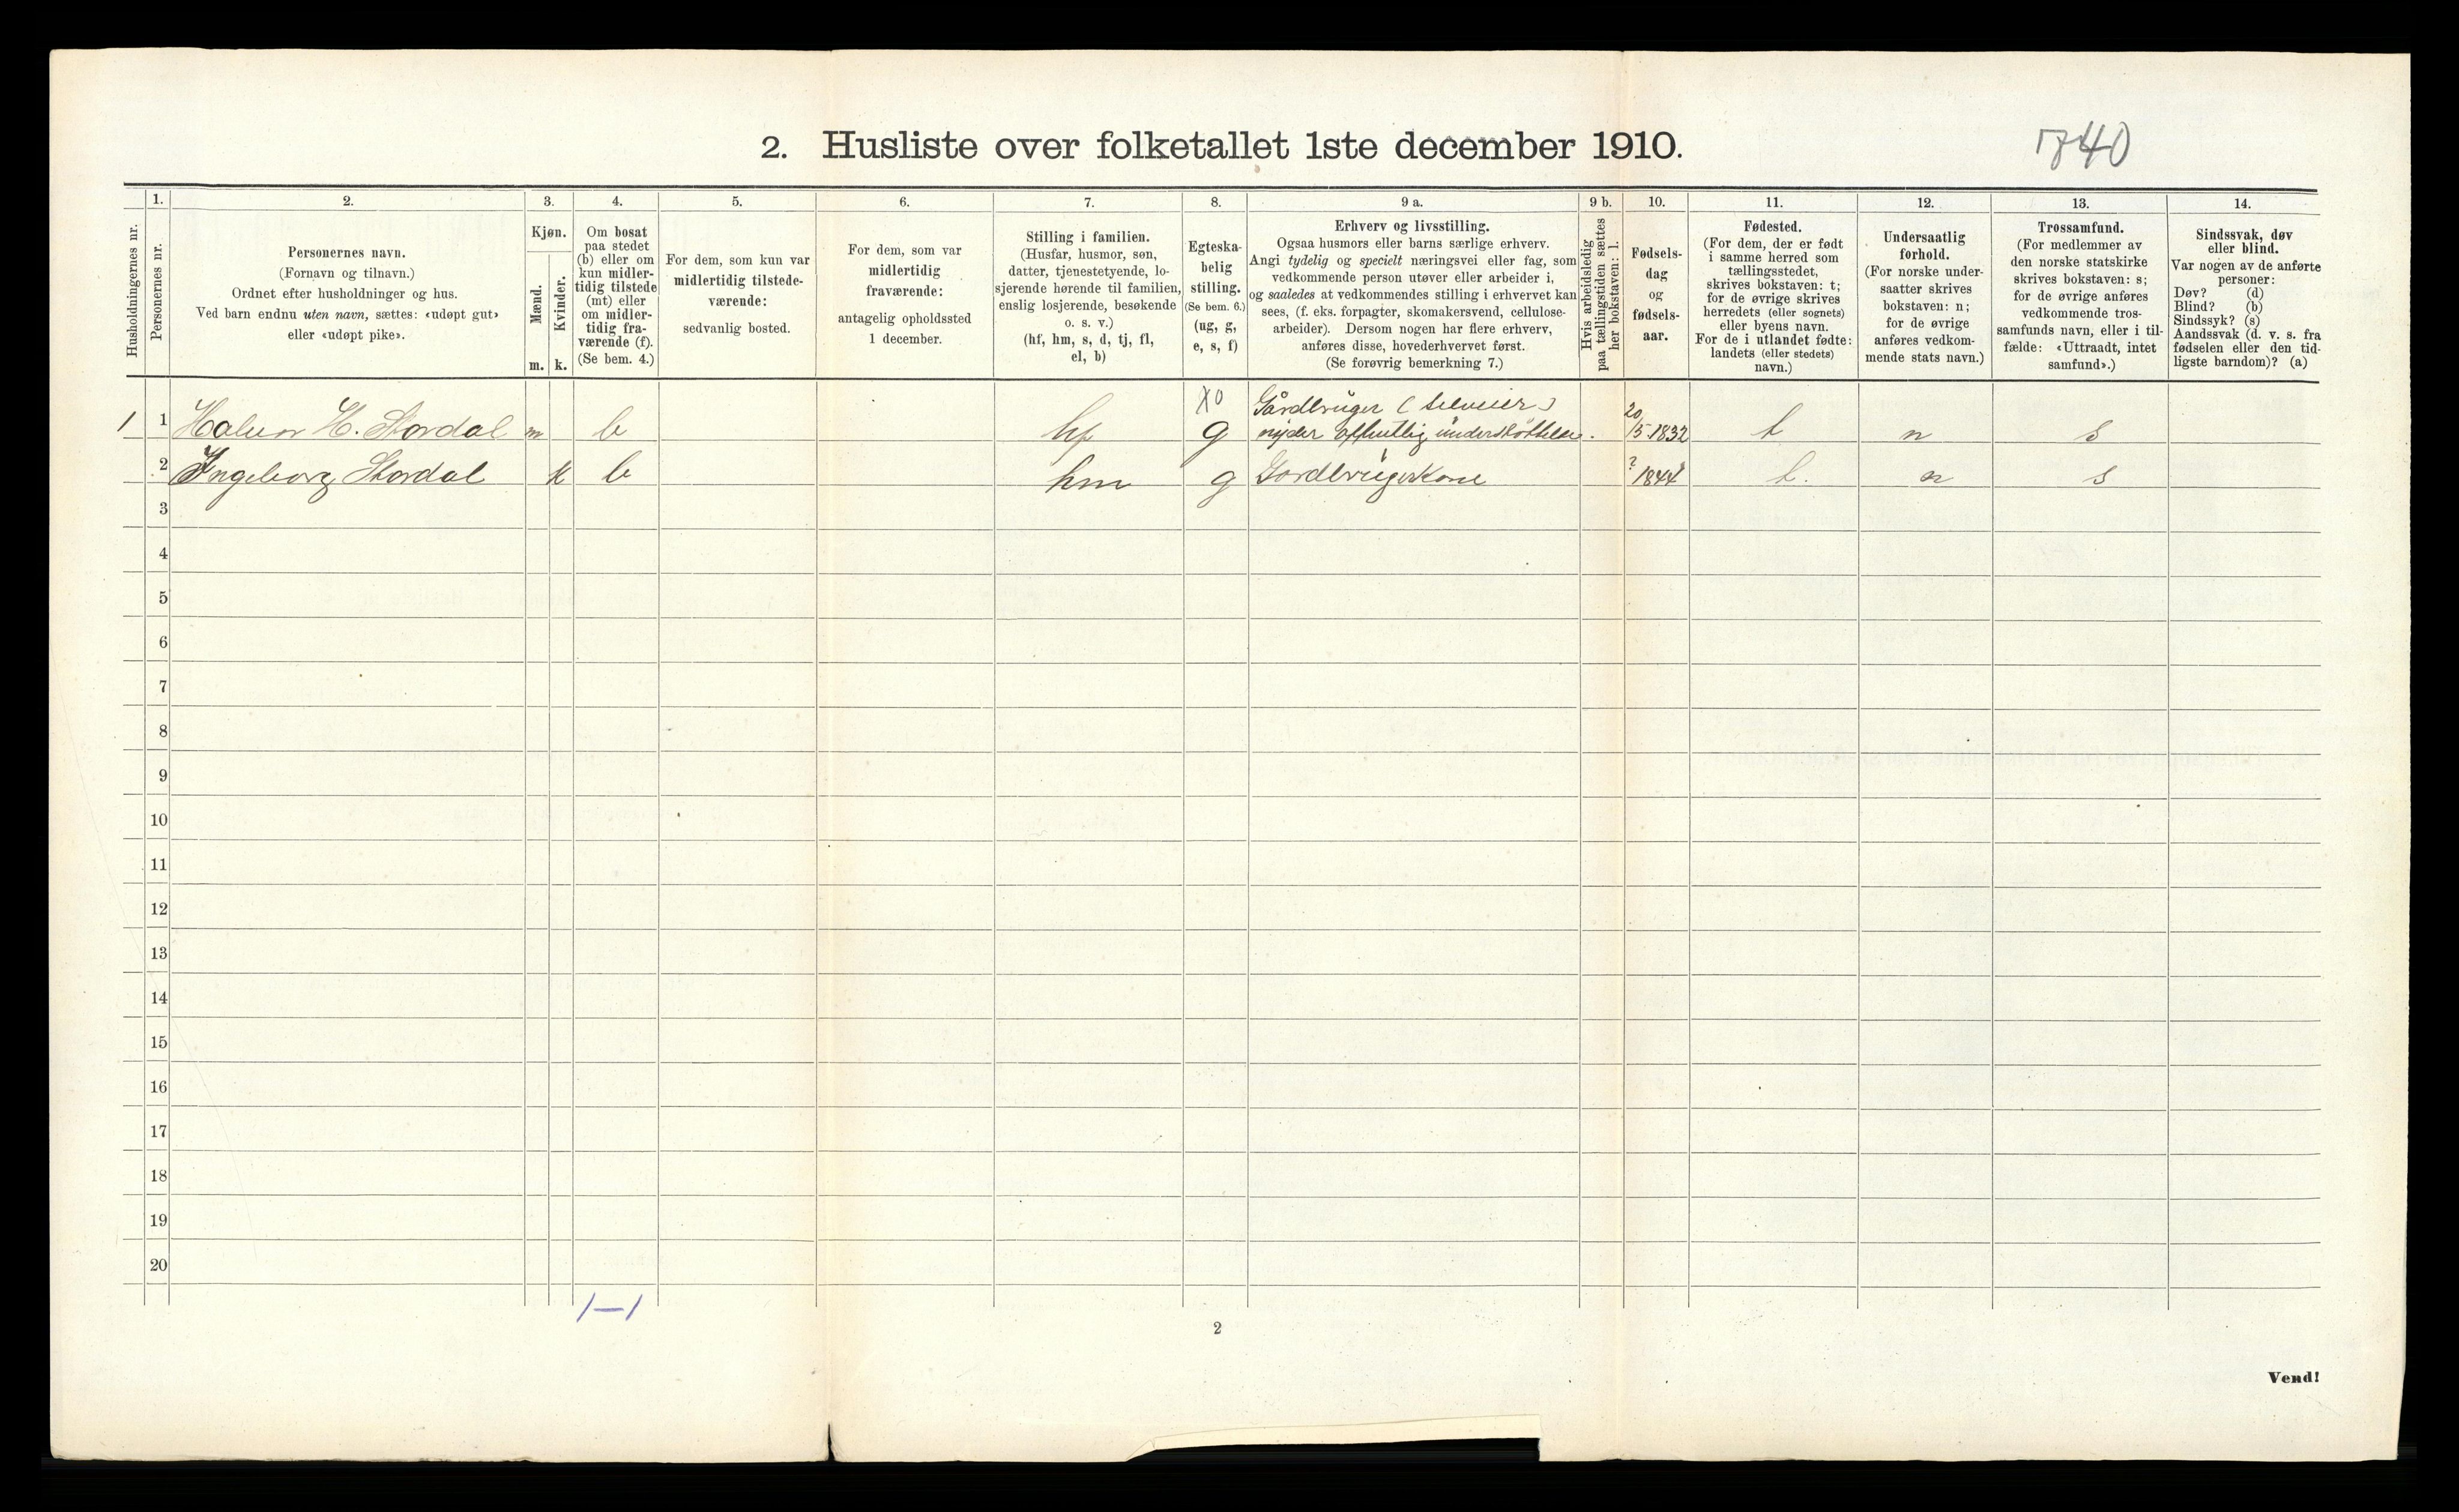 2. Husliste over folketallet 1ste december 1910.
1740
Husholdningernes nr.
1.
Personernes nr.
2.
Personernes navn.
(Fornavn og tilnavn.)
Ordnet efter husholdninger og hus.
Ved barn endnu uten navn, sættes: «udøpt gut»
eller «udøpt pike».
3.
Kjøn.
Mænd.
Kvinder.
m. k.
4.
Om bosat
paa stedet
(b) eller om
kun midler-
tidig tilstede
(mt) eller
om midler-
tidig fra-
værende (f).
(Se bem. 4.)
5.
For dem, som kun var
midlertidig tilstede-
værende:
sedvanlig bosted.
6.
For dem, som var
midlertidig
fraværende:
antagelig opholdssted
1 december.
7.
Stilling i familien.
(Husfar, husmor, søn,
datter, tjenestetyende, lo-
sjerende hørende til familien,
enslig losjerende, besøkende
o. s. v.)
(hf, hm, s, d, tj, fl,
el, b)
8.
Egteska-
belig
stilling.
(Se bem. 6.)
(ug, g,
e, s, f)
9 a.
Erhverv og livsstilling.
Ogsaa husmors eller barns særlige erhverv.
Angi tydelig og specielt næringsvei eller fag, som
vedkommende person utøver eller arbeider i,
og saaledes at vedkommendes stilling i erhvervet kan
sees, (f. eks. forpagter, skomakersvend, cellulose-
arbeider). Dersom nogen har flere erhverv,
anføres disse, hovederhvervet først.
(Se forøvrig bemerkning 7.)
9 b.
Hvis arbeidsledig
paa tællingstiden sættes
her bokstaven: l.
10.
Fødsels-
dag
og
fødsels-
aar.
11.
Fødested.
(For dem, der er født
i samme herred som
tællingsstedet,
skrives bokstaven: t;
for de øvrige skrives
herredets (eller sognets)
eller byens navn.
For de i utlandet fødte:
landets (eller stedets)
navn.)
12.
Undersaatlig
forhold.
(For norske under-
saatter skrives
bokstaven: n;
for de øvrige
anføres vedkom-
mende stats navn.)
13.
Trossamfund.
(For medlemmer av
den norske statskirke
skrives bokstaven: s;
for de øvrige anføres
vedkommende tros-
samfunds navn, eller i til-
fælde: «Uttraadt, intet
samfund».)
14.
Sindssvak, døv
eller blind.
Var nogen av de anførte
personer:
Døv? (d)
Blind? (b)
Sindssyk? (s)
Aandssvak (d. v. s. fra
fødselen eller den tid-
ligste barndom)? (a)
X0 Gårdbruger (selveier)
1 1 Halvor H. Stordal m b hf g nyder offentlig understøttelse. 20/5 1832 t n s
2 Ingeborg Stordal k b hm g Gardbrugerkone ? 1844 t. n s
3
4
5
6
7
8
9
10
11
12
13
14
15
16
17
18
19
20
1—1
2
Vend!